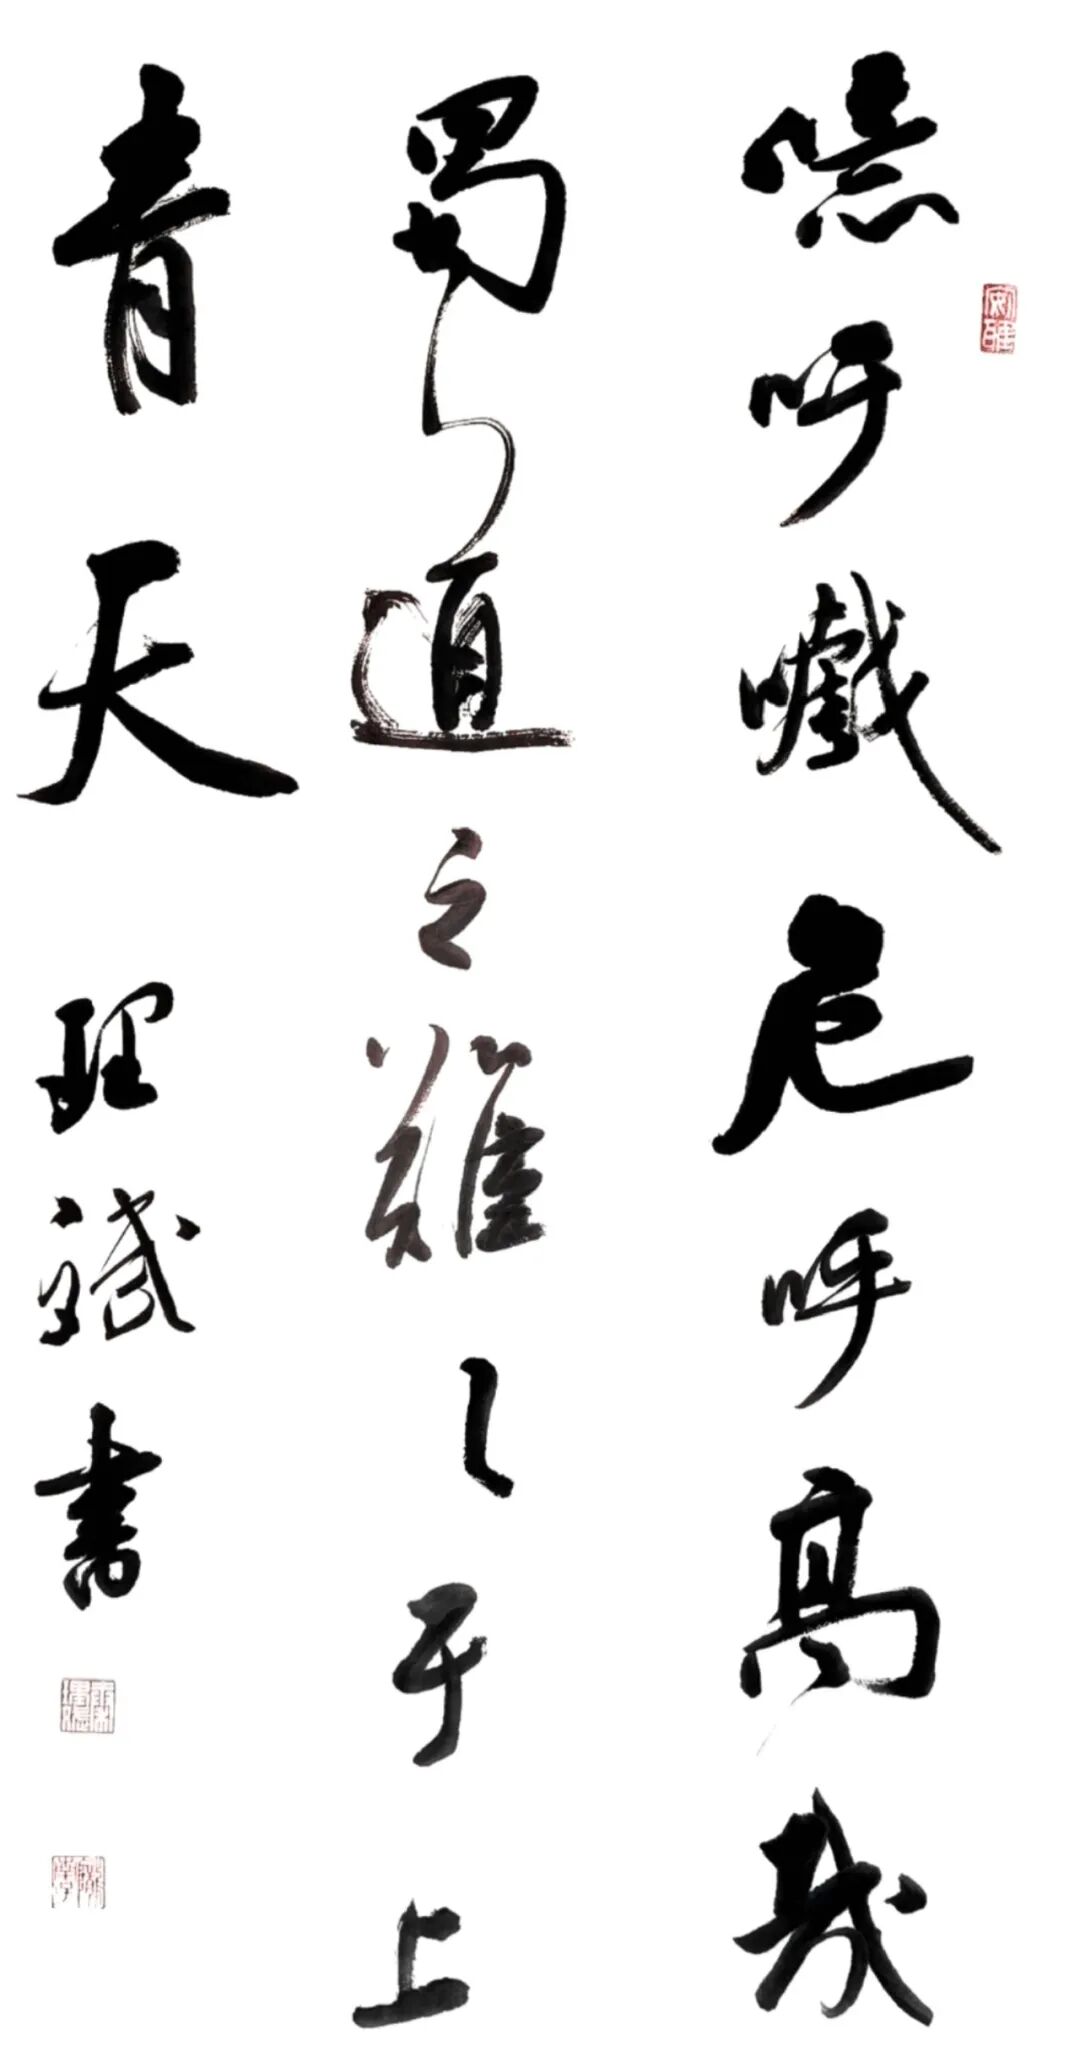 噫吁嚱危呼高哉
蜀道之難〻于上
青天 理 書